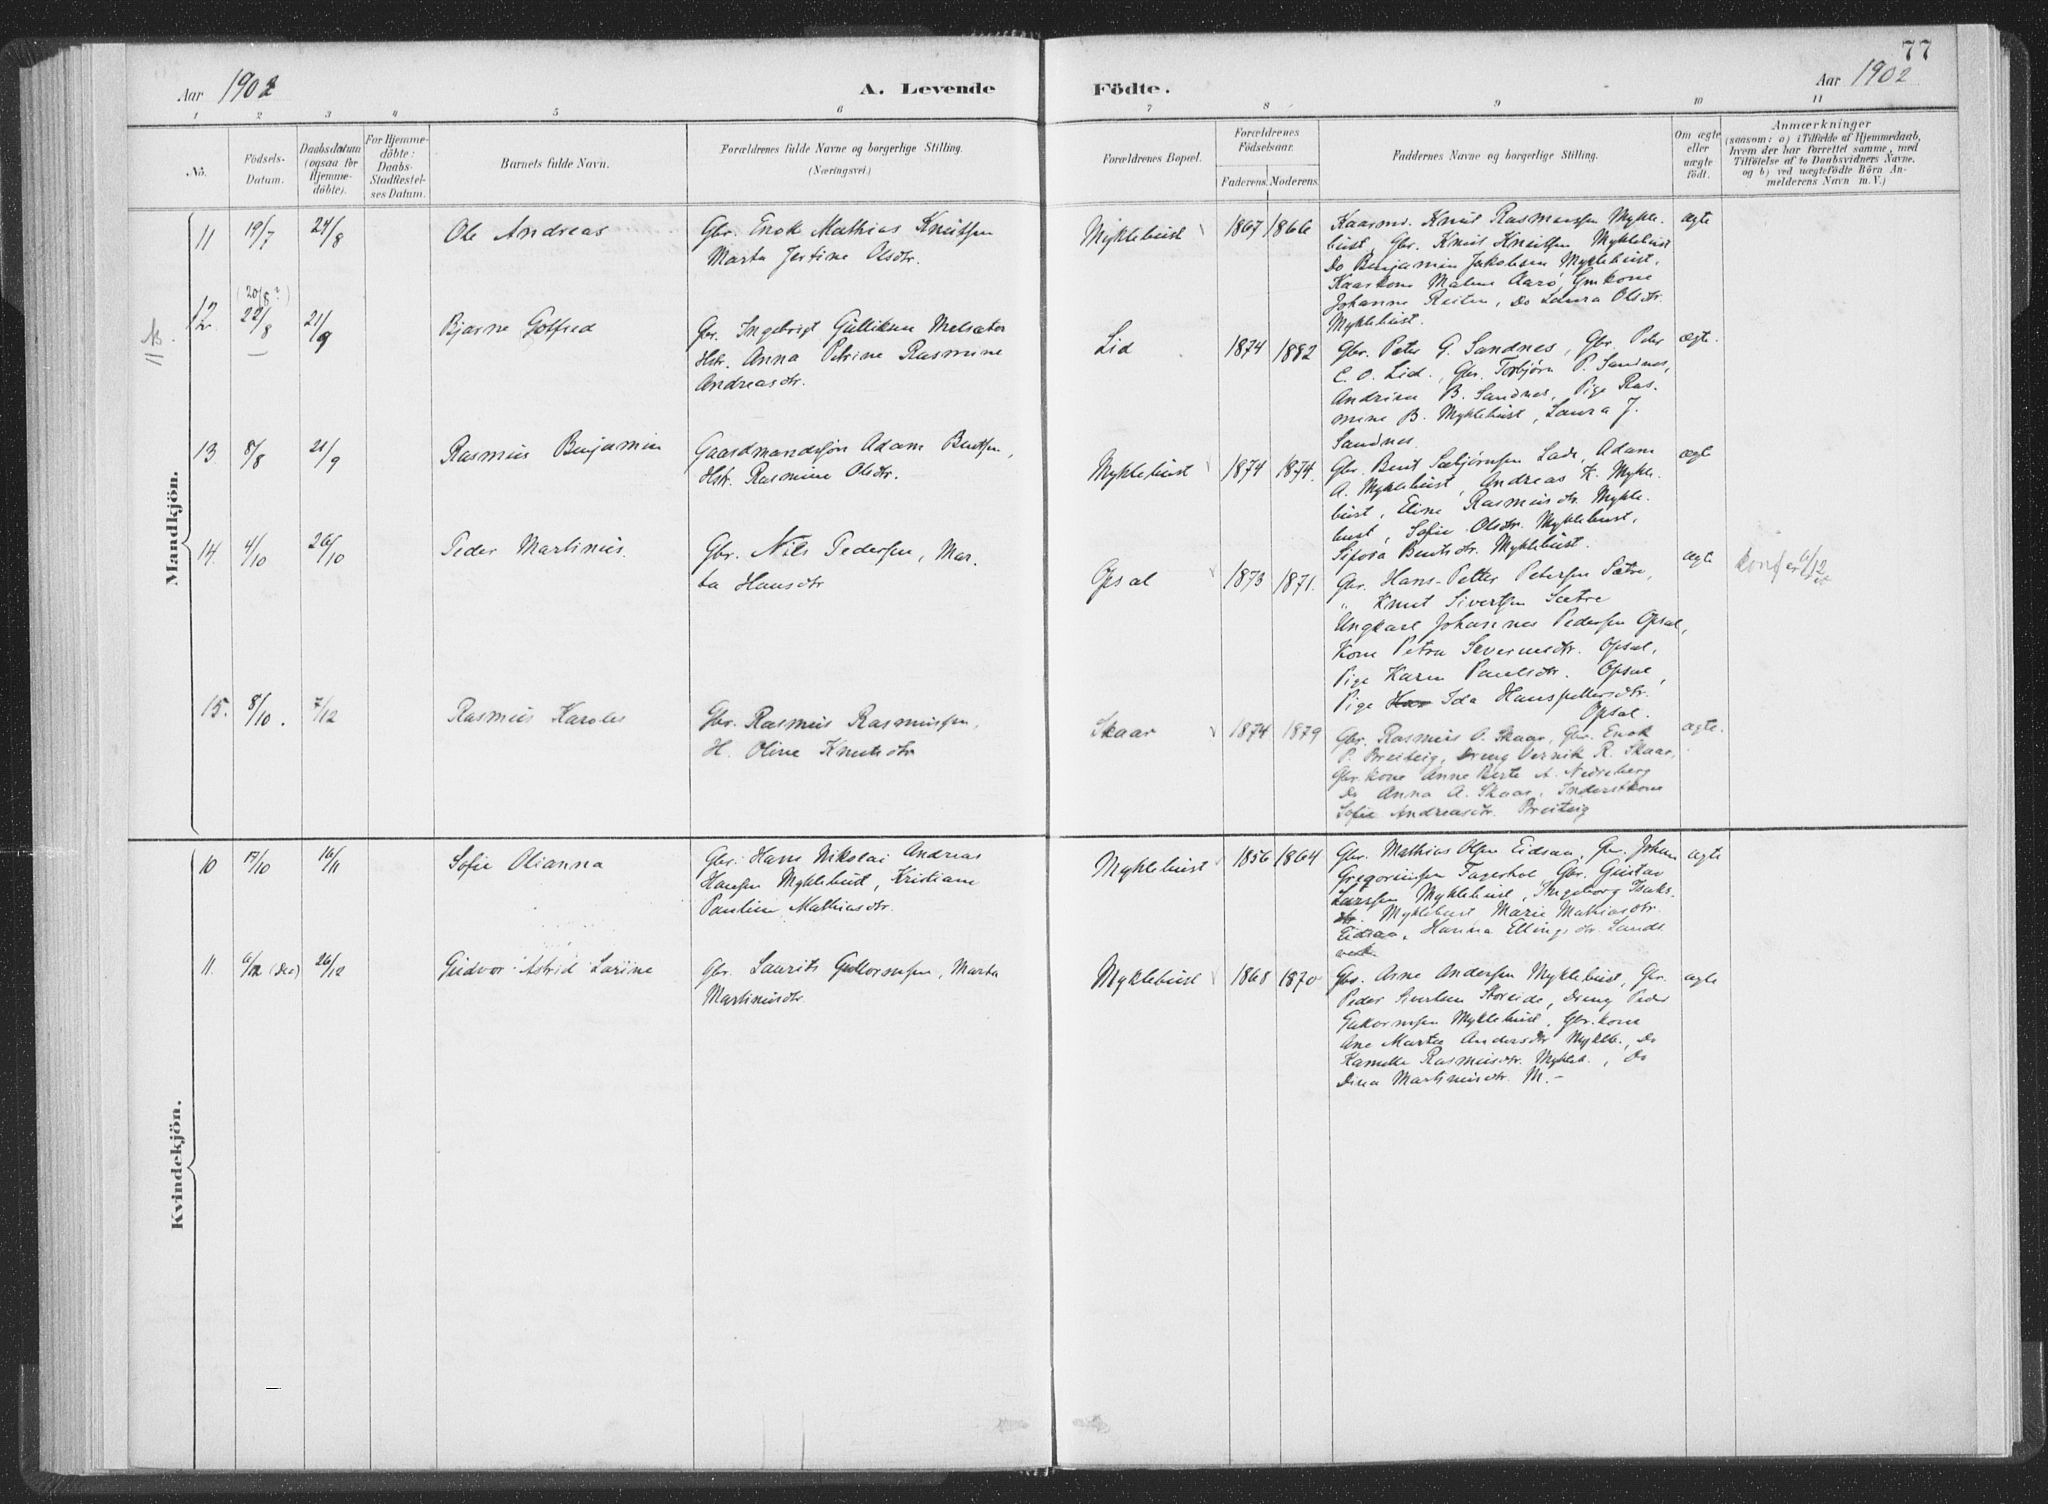 77
Aar 1902
A. Levende
Födte.
Aar 1902
1 2 3 4 5 6 7 8 9 10 11
No.
Födsels-
Datum.
Daabsdatum
(ogsaa for
Hjemme-
döbte).
For Hjemme-
döbte:
Daabs-
Stadfæstel-
ses Datum.
Barnets fulde Navn.
Forældrenes fulde Navne og borgerlige Stilling.
(Næringsvei)
Forældrenes Bopæl.
Forældrenes
Födselsaar.
Faderens. Moderens.
Faddernes Navne og borgerlige Stilling.
Om ægte
eller
uægte
født.
Anmærkninger
(saasom: a) i Tilfælde af Hjemmedaab,
hvem der har forrettet samme, med
Tilföielse af to Daabsvidners Navne,
og b) ved uægtefödte Börn An-
melderens Navn m. V.)
Mandkjön.
11 19/7 24/8 Ole Andreas
Gbr. Enok Mathias Knutsen
Marta Jertine Olsdtr.
Myklebust 1867 1866
Kaarmd. Knut Rasmussen Mykle-
bust, Gbr. Knut Knutsen Myklebust
Do Benjamin Jakobsen Myklebust,
Kaarkone Malene Aarö, Gmkone
Johanne Reiten, Do Laura Olsdtr.
Myklebust.
ægte
NB.
12. (20/8?) 22/8 21/9 Bjarne Gotfred
Gbr. Ingebrigt Gulliksen Melsæter
Hstr. Anna Petrine Rasmine
Andreasdtr.
Lid 1874 1882
Gbr. Peter G. Sandnes, Gbr. Peter
C. O. Lid, Gbr. Torbjörn P. Sandnes,
Andrine B. Sandnes, Pige Ras-
mine B. Myklebust, Laura J.
Sandnes.
ægte.
13. 8/8 21/9 Rasmus Benjamin
Gaardmandssön Adam Bentsen,
Hstr. Rasmine Olsdtr.
Myklebust 1874 1874.
Gbr. Bent Sæbjörnsen Lade, Adam
A. Myklebust, Andreas K. Mykle-
bust, Eline Rasmusdtr. Mykle-
bust, Sofie Olsdtr. Myklebust,
Sifora Bentsdtr. Myklebust.
ægte
14. 4/10 26/10 Peder Martinus.
Gbr. Nils Pedersen, Mar-
ta Hansdtr
Opsal 1873 1871.
Gbr. Hans-Petter Petersen Sætre,
" Knut Sivertsen Sætre
Ungkarl Johannes Pedersen Opsal,
Kone Petra Severinesdtr. Opsal,
Pige Karen Paulsdtr. Opsal,
Pige Ida Hanspettersdtr.
Opsal.
ægte
15. 8/10. 7/12 Rasmus Karolus
Gbr. Rasmus Rasmussen,
H. Oline Knutsdtr
Skaar 1874 1879
Gbr. Rasmus O. Skaar, Gbr. Enok
P. Breiteig, Dreng Vernik R. Skaar,
Gbr.kone Anne Berte A. Nedreberg
Do Anna A. Skaar, Inderstkone
Sofie Andreasdtr. Breiteig
ægte.
Kvindekjön.
10 17/10 16/11 Sofie Olianna
Gbr. Hans Nikolai Andreas
Hansen Myklebust, Kristiane
Pauline Mathiasdtr.
Myklebust 1856 1864
Gbr. Mathias Olsen Eidsaa, Gbr. Johan
Gregoriussen Fagerhol, Gbr. Gustav
Larsen Myklebust, Ingeborg Isaks-
dtr. Myklebust, Marie Mathiasdtr.
Eidsaa, Hanna Ellingsdtr. Landt
ægte
11. 6/12 (Dec) 26/12 Gudvor Astrid Larine
Gbr. Laurits Guttormsen, Marta
Martinusdtr.
Myklebust 1868 1870
Gbr. Arne Andersen Myklebust, Gbr.
Peder Sivertsen Storeide, Dreng Peder
Gutormsen Myklebust, Gbr.kone
Ane Marta Andersdtr Mykleb., Do
Kamilla Rasmusdtr. Mykleb., Do
Dina Martinusdtr. M.-
ægte